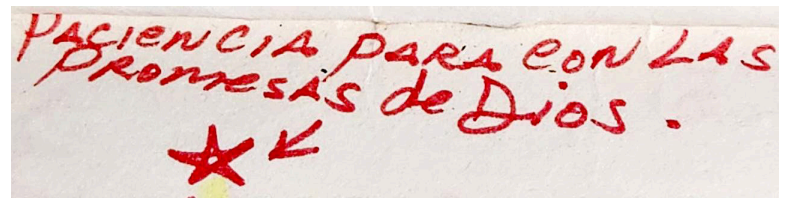 PACIENCIA PARA CON LAS
PROMESAS de Dios.